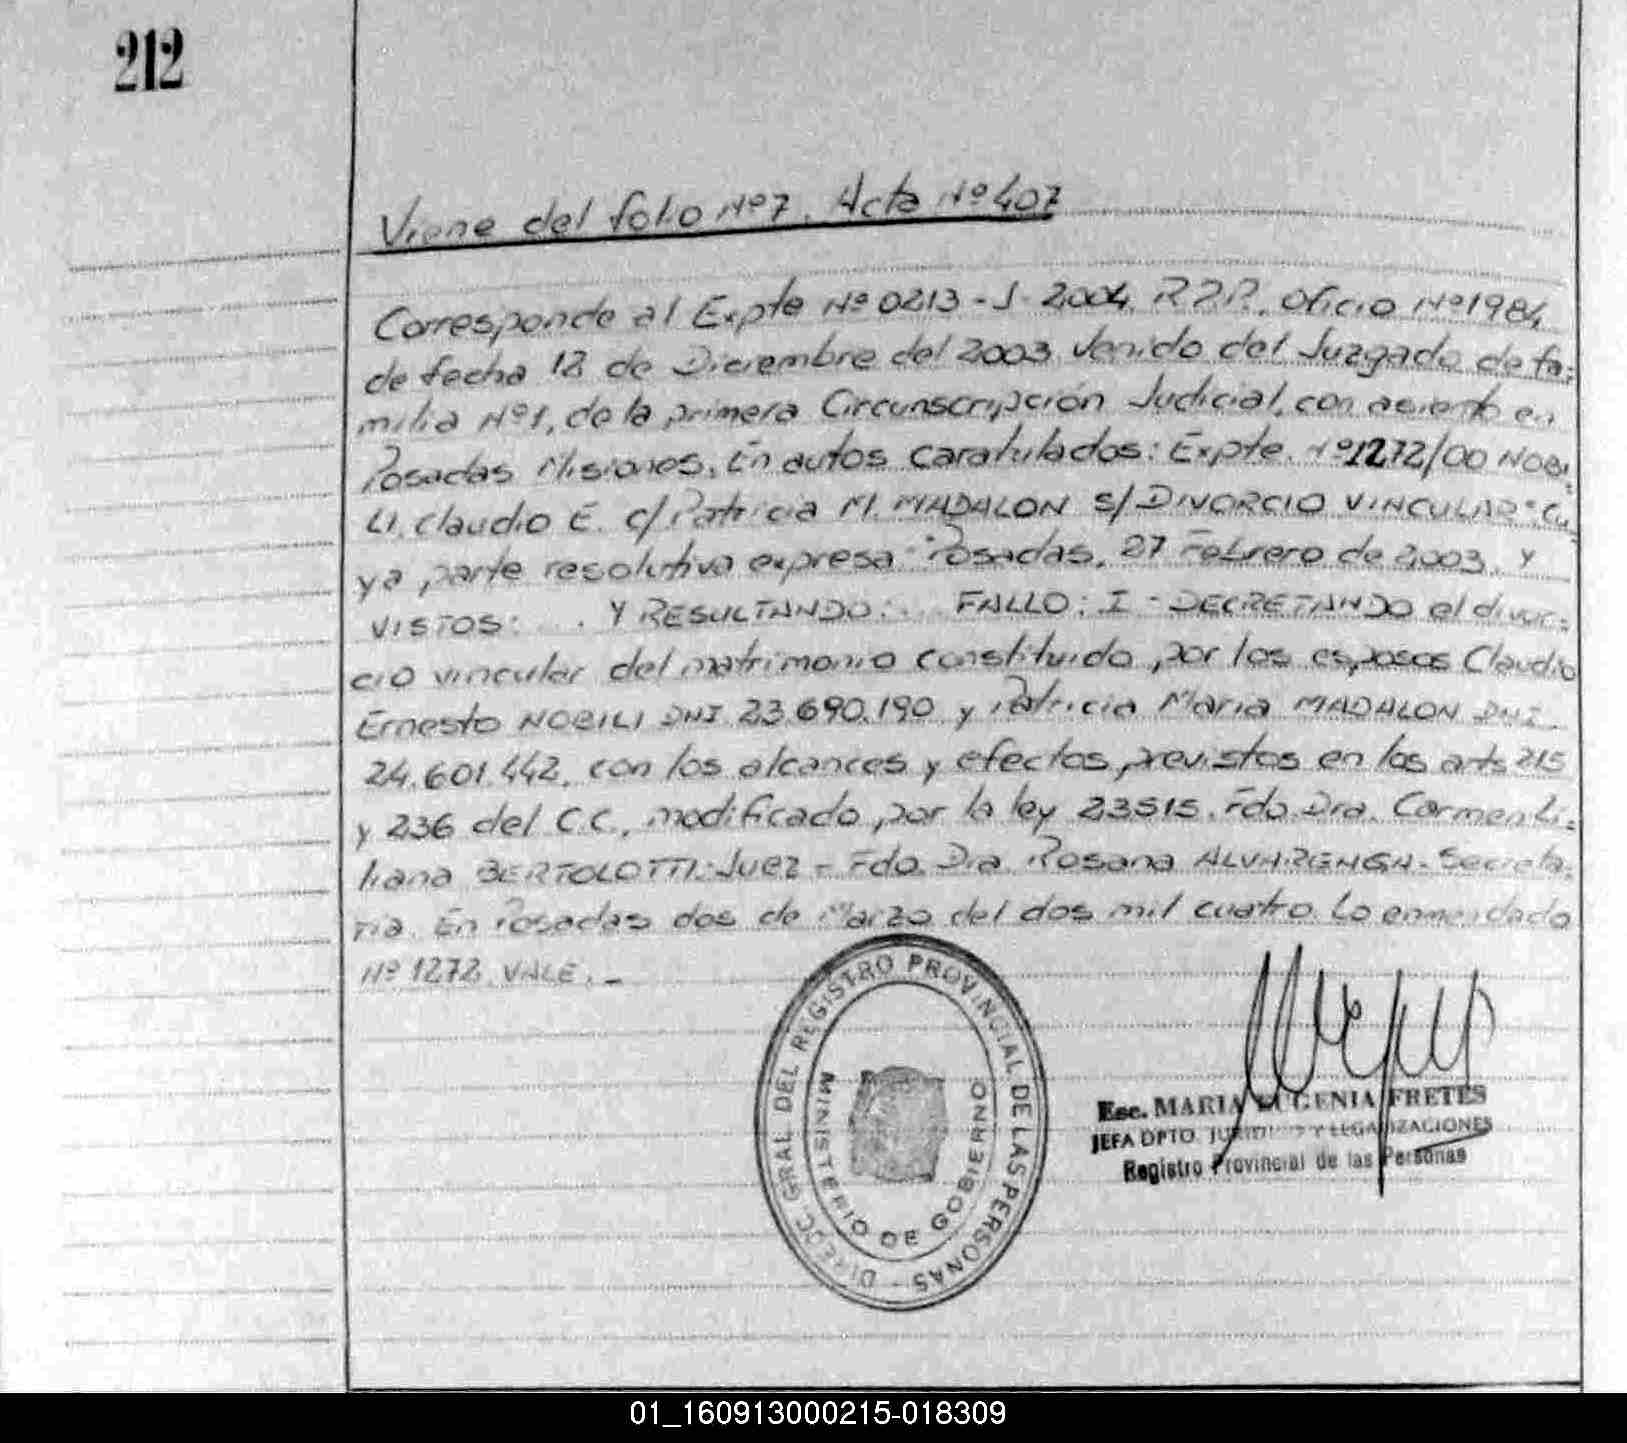 212
Viene del folio Nº7. Acta Nº 407
Corresponde al Expte Nº 0213 - J - 2004. R.P.P. Oficio Nº 1984
de fecha 12 de Diciembre del 2003 venido del Juzgado de fa-
milia Nº1, de la primera Circunscripción Judicial, con asiento en
Posadas Misiones. En autos caratulados: Expte. Nº1272/00 NOBI-
LI, Claudio E. c/ Patricia M. MADALON S/ DIVORCIO VINCULAR" Cu-
ya parte resolutiva expresa "Posadas, 27 Febrero de 2003. Y
VISTOS: . . Y RESULTANDO: . . FALLO: I - DECRETANDO el divor-
cio vincular del matrimonio constituido por los esposos Claudio
Ernesto NOBILI DNI 23.690.190 y Patricia Maria MADALON DNI
24.601.442, con los alcances y efectos previstos en los arts 215
y 236 del C.C., modificado por la ley 23515. Fdo. Dra. Carmen Li-
liana BERTOLOTTI. Juez - Fdo. Dra Rosana ALVARENGA - Secreta-
ria. En Posadas dos de Marzo del dos mil cuatro. Lo enmendado
Nº 1272 VALE. -
DIRECC. GRAL DEL REGISTRO PROVINCIAL DE LAS PERSONAS -
MINISTERIO DE GOBIERNO
Esc. MARIA EUGENIA FRETES
JEFA DPTO. JURIDICO Y LEGALIZACIONES
Registro Provincial de las Personas
01_160913000215-018309